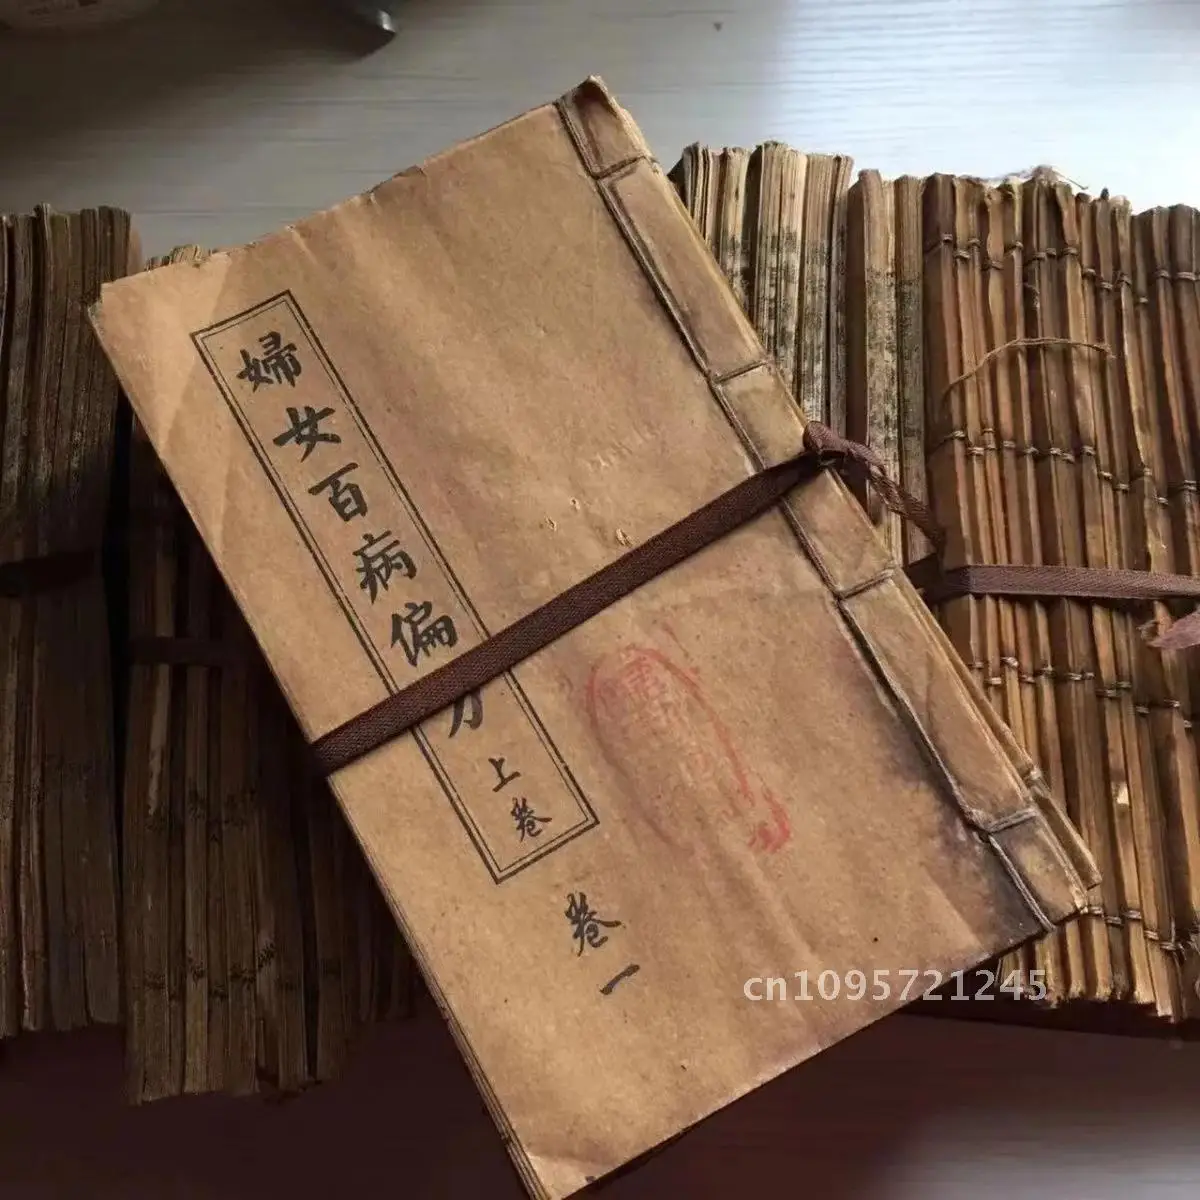 婦女百病偏方上卷
卷一
cn1095721245